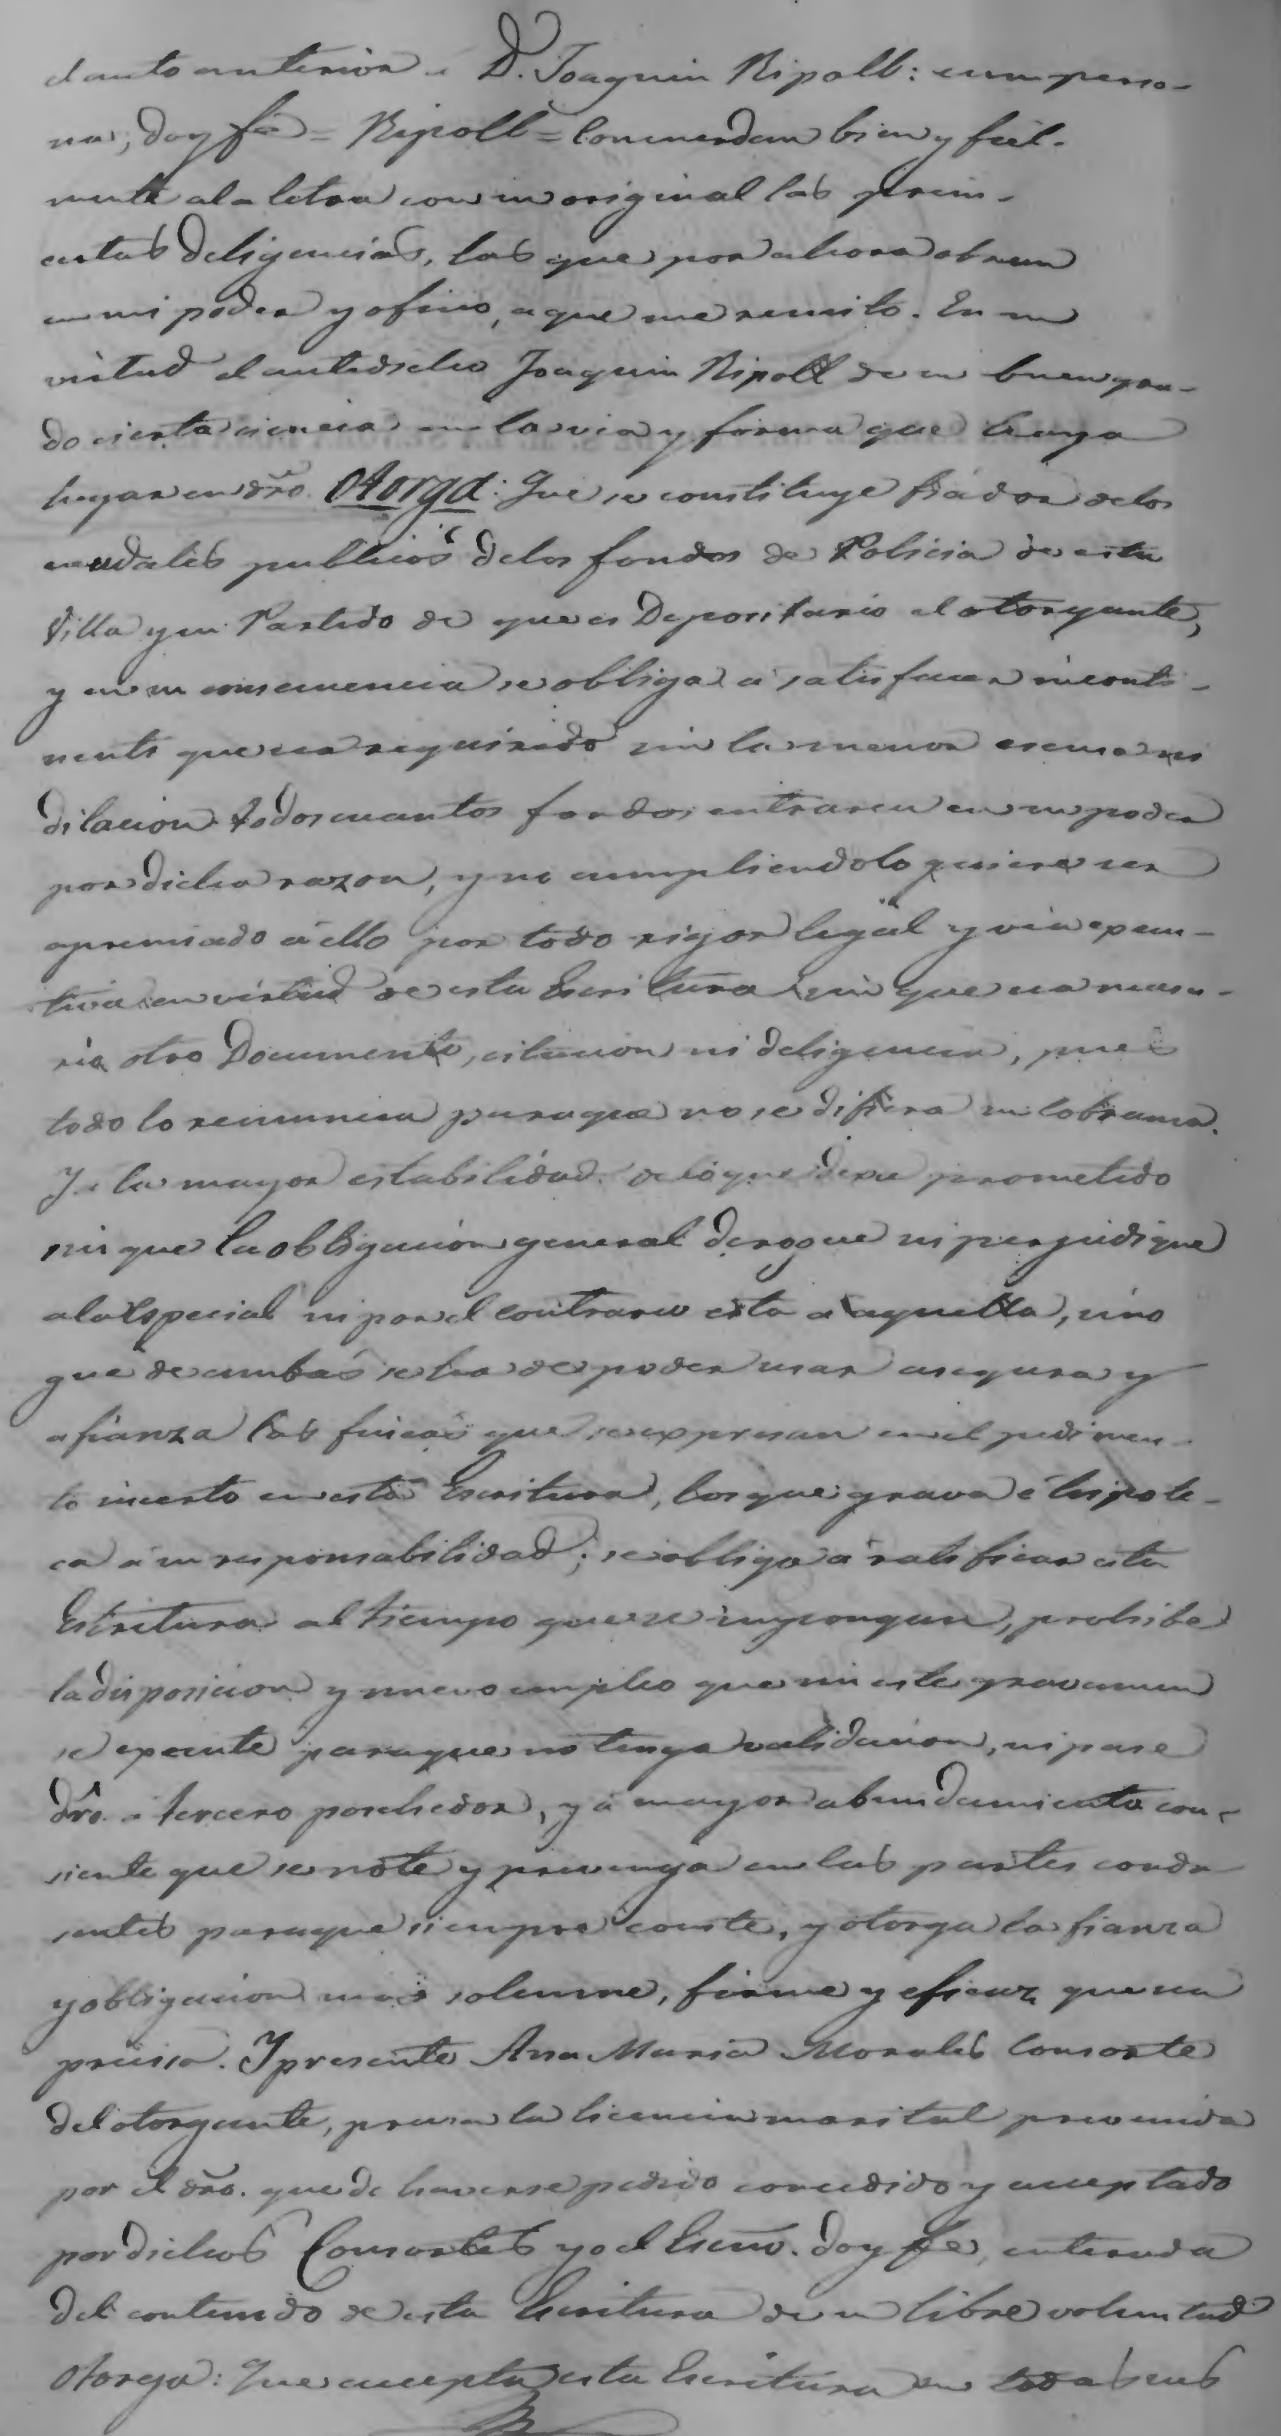 el auto anterior á D. Joaquin Ripoll: en su perso-
na; doy fé = Ripoll = Concuerdan bien y fiel-
mente ala letra con su original las prein-
sertas deligencias, las que por ahora obran
en mi poder y oficio, a que me remito. En su
virtud el antedicho Joaquin Ripoll de su buen gra-
do cierta ciencia en la via y forma que haya
lugar en dro. Otorga: Que se constituye fiador delos
caudales publicos delos fondos de Policia de esta
Villa y su Partido de que es Depositario el otorgante,
y en su consecuencia se obliga á satisfacer inconti-
nenti que sea requirido sin la menor escusa ni
dilacion todos cuantos fondos entraren en su poder
por dicha razon, y no cumpliendolo quiere ser
apremiado á ello por todo rigor legal y via execu-
tiva en virtud de esta Escritura sin que sea necesa-
ria otro Documento, citacion ni deligencia, pues
todo lo renuncia paraque no se difiera su cobranza.
Y á la mayor estabilidad de lo que dexa prometido
sin que la obligacion general derogue ni perjudique
ala especial ni por el contrario esta a aquella, sino
que de ambas se ha de poder usar asegura y
afianza las fincas que se expresan en el pedimen-
to inserto en esta Escritura, las que grava é hipote-
ca á su responsabilidad; se obliga á ratificar esta
Escritura al tiempo que se impongan, prohibe
la disposicion y nuevo empleo que sin este gravamen
se execute paraque no tenga validacion, ni pase
dro. á tercero posehedor, y á mayor abundamiento con-
siente que se note y prevenga en las partes condu
centes paraque siempre conste, y otorga la fianza
y obligacion mas solemne, firme y eficaz que sea
precisa. Y presente Ana Maria Morales Consorte
del otorgante, previa la licencia marital prevenida
por el dro. que de haverse pedido concedido y aceptado
por dichos Consortes yo el Escno. doy fe, enterada
del contenido de esta Escritura de su libre voluntad
Otorga: Que accepta esta Escritura en todas sus